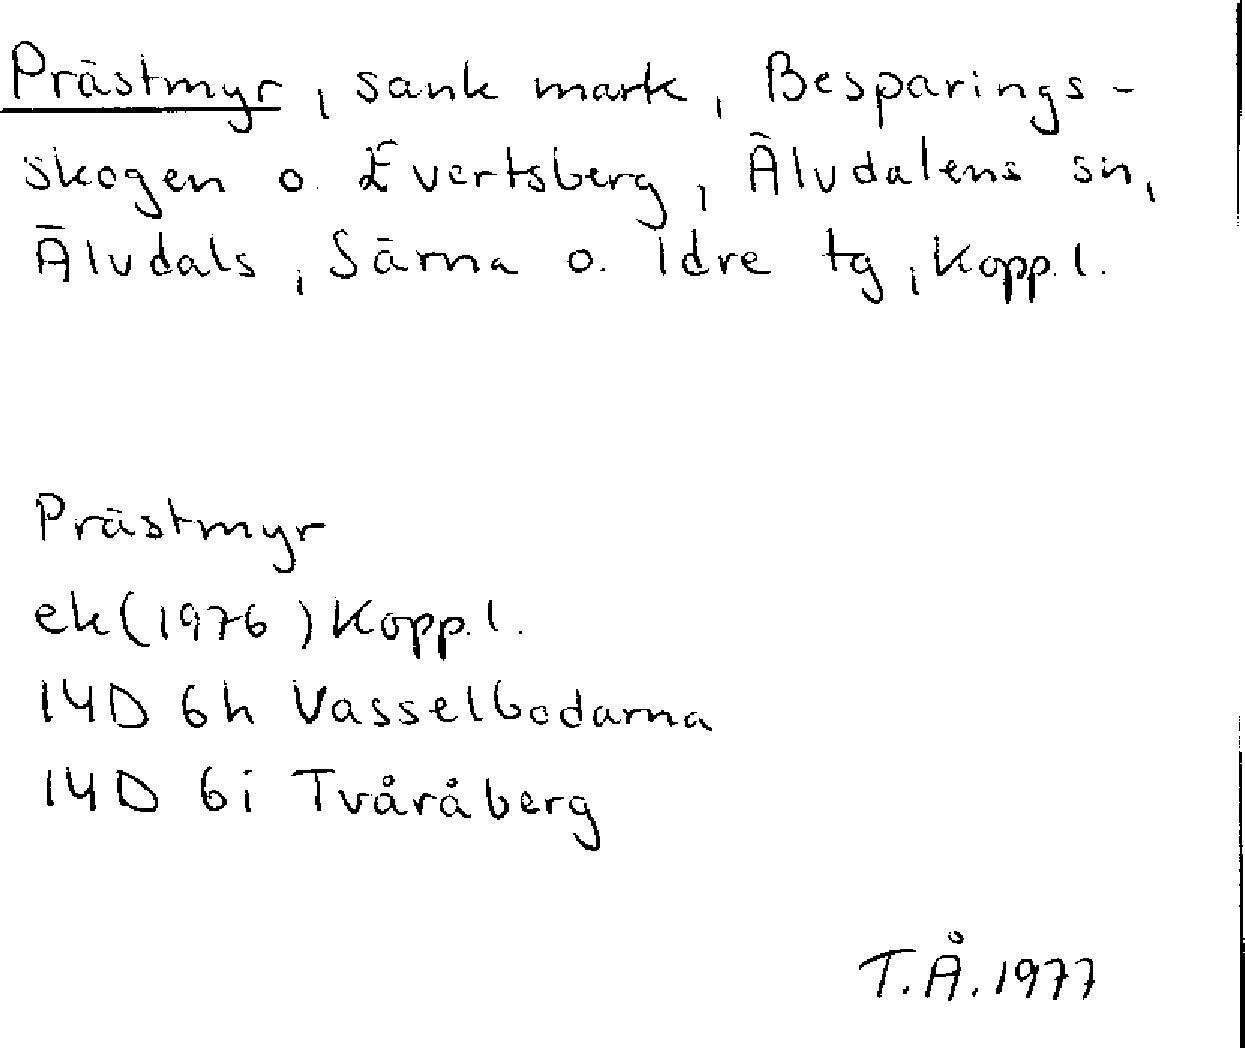 Prästmyr, sank mark, Besparings-
skogen o. Evertsberg, Älvdalens sn,
Älvdals, Särna o. Idre tg, Kopp. l.
Prästmyr
ek(1976) Kopp. l.
14D 6h Vasselbodarna
14D 6i Tvåråberg
T.Å. 1977